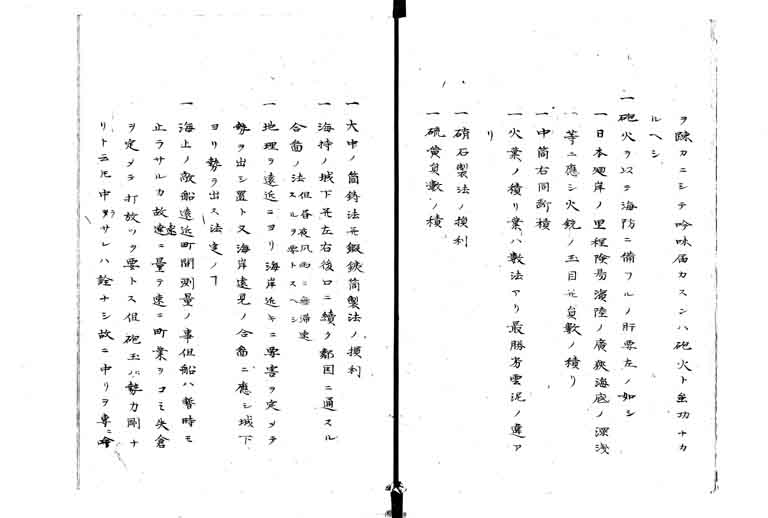 ヲ疎カニシテ吟味届カスンハ砲火ト虽功ナカ
ルヘシ
一砲火ヲ以テ海防ニ備フルノ肝要左ノ如シ
一日本廻岸ノ里程険易濱陸ノ廣狹海底ノ深浅
一等ニ應シ火銃ノ玉目并員數ノ積リ
一中筒右同断積
一火業ノ積リ業ハ數法アリ最勝劣雲泥ノ違ア
リ
一硝石製法ノ損利
一硫黄員數ノ積
一大中ノ筒鋳法并鍛銕筒製法ノ損利
一海持ノ城下并左右後口ニ續ク鄰国ニ通スル
合啚ノ法但昼夜風雨ニ無滞速スルヲ要トスヘシ
一地理ヲ遠近ニヨリ海岸近キニ要害ヲ定メテ
勢ヲ出シ置ト又海岸遠見ノ合啚ニ應シ城下
ヨリ勢ヲ出ス法定ノヿ
一海上ノ敵船遠近町間測量ノ事但船ハ暫時モ
止ラサルカ故速ニ量テ速ニ町業ヲコミ矢倉
ヲ定メテ打放ツヲ要トス但砲玉ハ勢力剛ナ
リト云ㇳモ中ラサレハ詮ナシ故ニ中リヲ專ニ